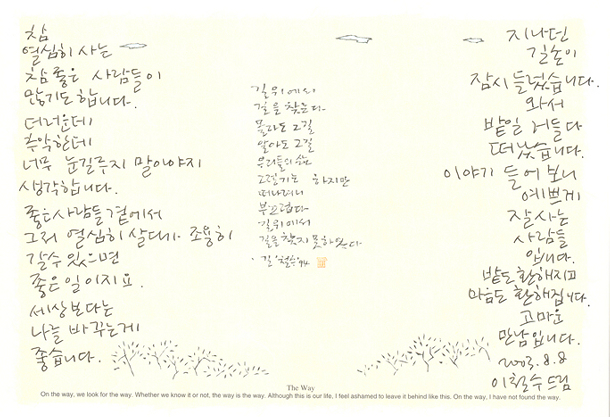 참
열심히 사는
참 좋은 사람들이
많기도 합니다.
더러운데
추악한데
너무 눈길주지 말아야지
생각합니다.
좋은사람들 곁에서
그저 열심히 살다가 조용히
갈수 있으면
좋은 일이지요.
세상보다는
나를 바꾸는게
좋습니다.
길 위에서
길을 찾는다
몰라도 그길
알아도 그길
우리들의 삶은
하지만
떠나려니
부끄럽다
길위에서
길을 찾지 못하였다
지나던
길손이
잠시 들렀습니다.
와서
밭일 거들다
떠났습니다.
이야기 들어보니
예쁘게
잘 사는
사람들
입니다.
밭도 환해지고
마음도 환해집니다.
고마운
만남입니다.
2003.8.8
이철수 드림
The Way
On the way, we look for the way. Whether we know it or not, the way is the way. Although this is our life, I feel ashamed to leave it behind like this. On the way, I have not found the way.